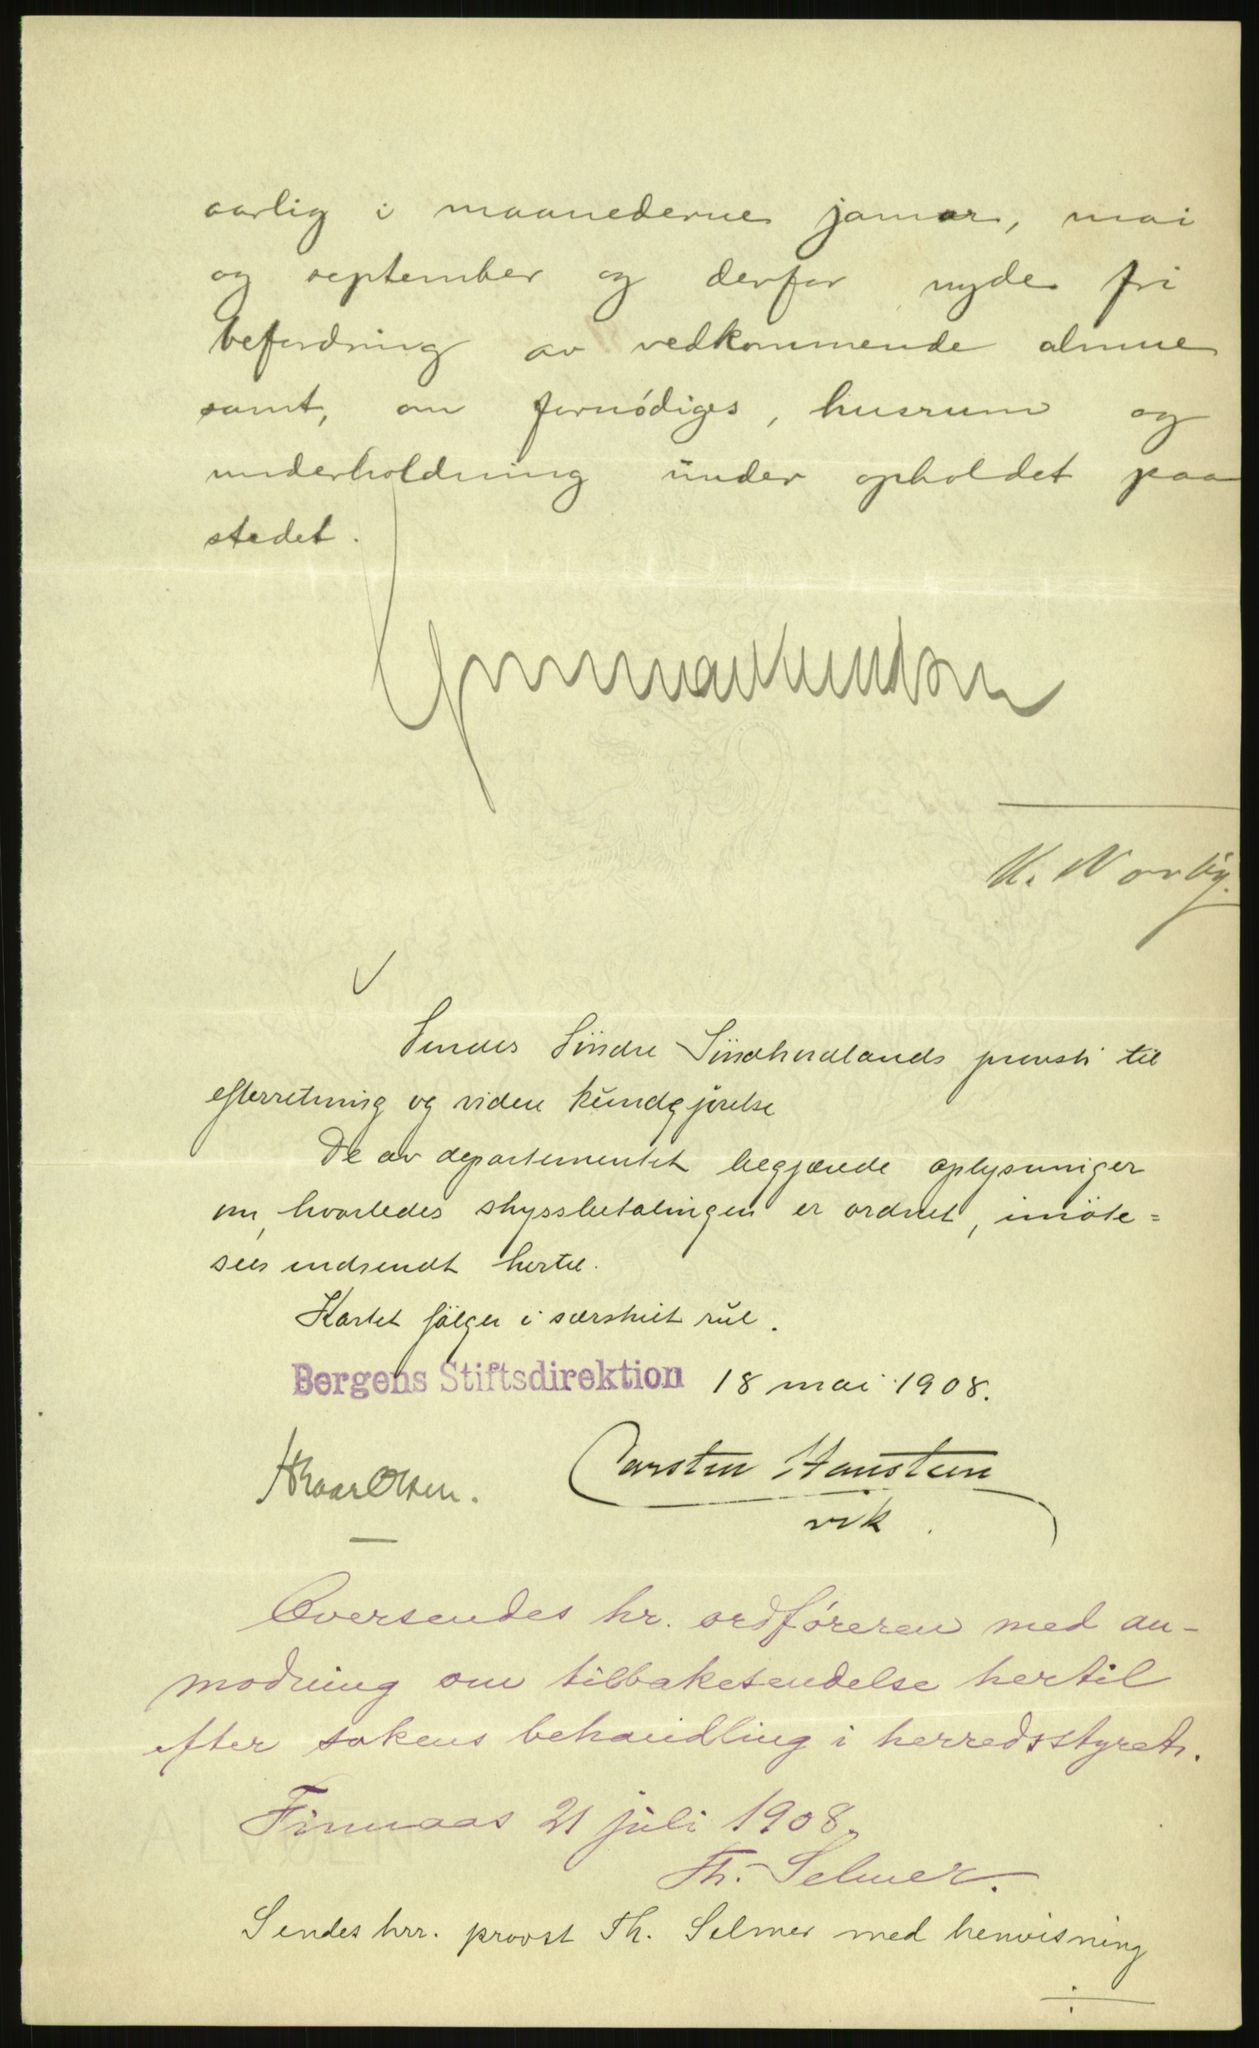 aarlig i maanederne januar, mai
og september og derfor nyde fri
befordring av vedkommende almue
samt, om fornödiges, husrum og
underholdning under opholdet paa
stedet.
K. Norby.
Sendes Söndre Söndhordlands provsti til
efterretning og videre kundgjörelse
De av departementet begjærede oplysninger
om, hvorledes skyssbetalingen er ordnet, imöte=
sees indsendt hertil.
Kartet fölger i særskilt rul.
Bergens Stiftsdirektion 18 mai 1908.
Carsten Hansteen
Olsen.
vik.
Oversendes hr. ordföreren med an-
modning om tilbakesendelse hertil
efter sakens behandling i herredsstyret.
Finnaas 21 juli 1908.
Th. Selmer.
Sendes hrr. provst Th. Selmer med henvisning